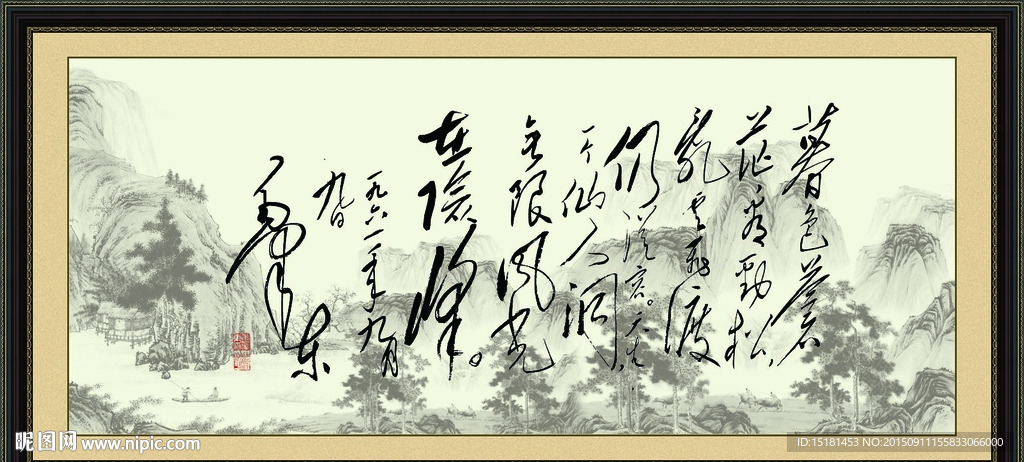 暮色蒼
茫看勁松,
亂云飛渡
仍從容。天生
一个仙人洞,
无限風光
在險峰。
一九六一年九月
九日
毛澤東
昵图网 www.nipic.com
ID:15181453 NO:20150911155833066000